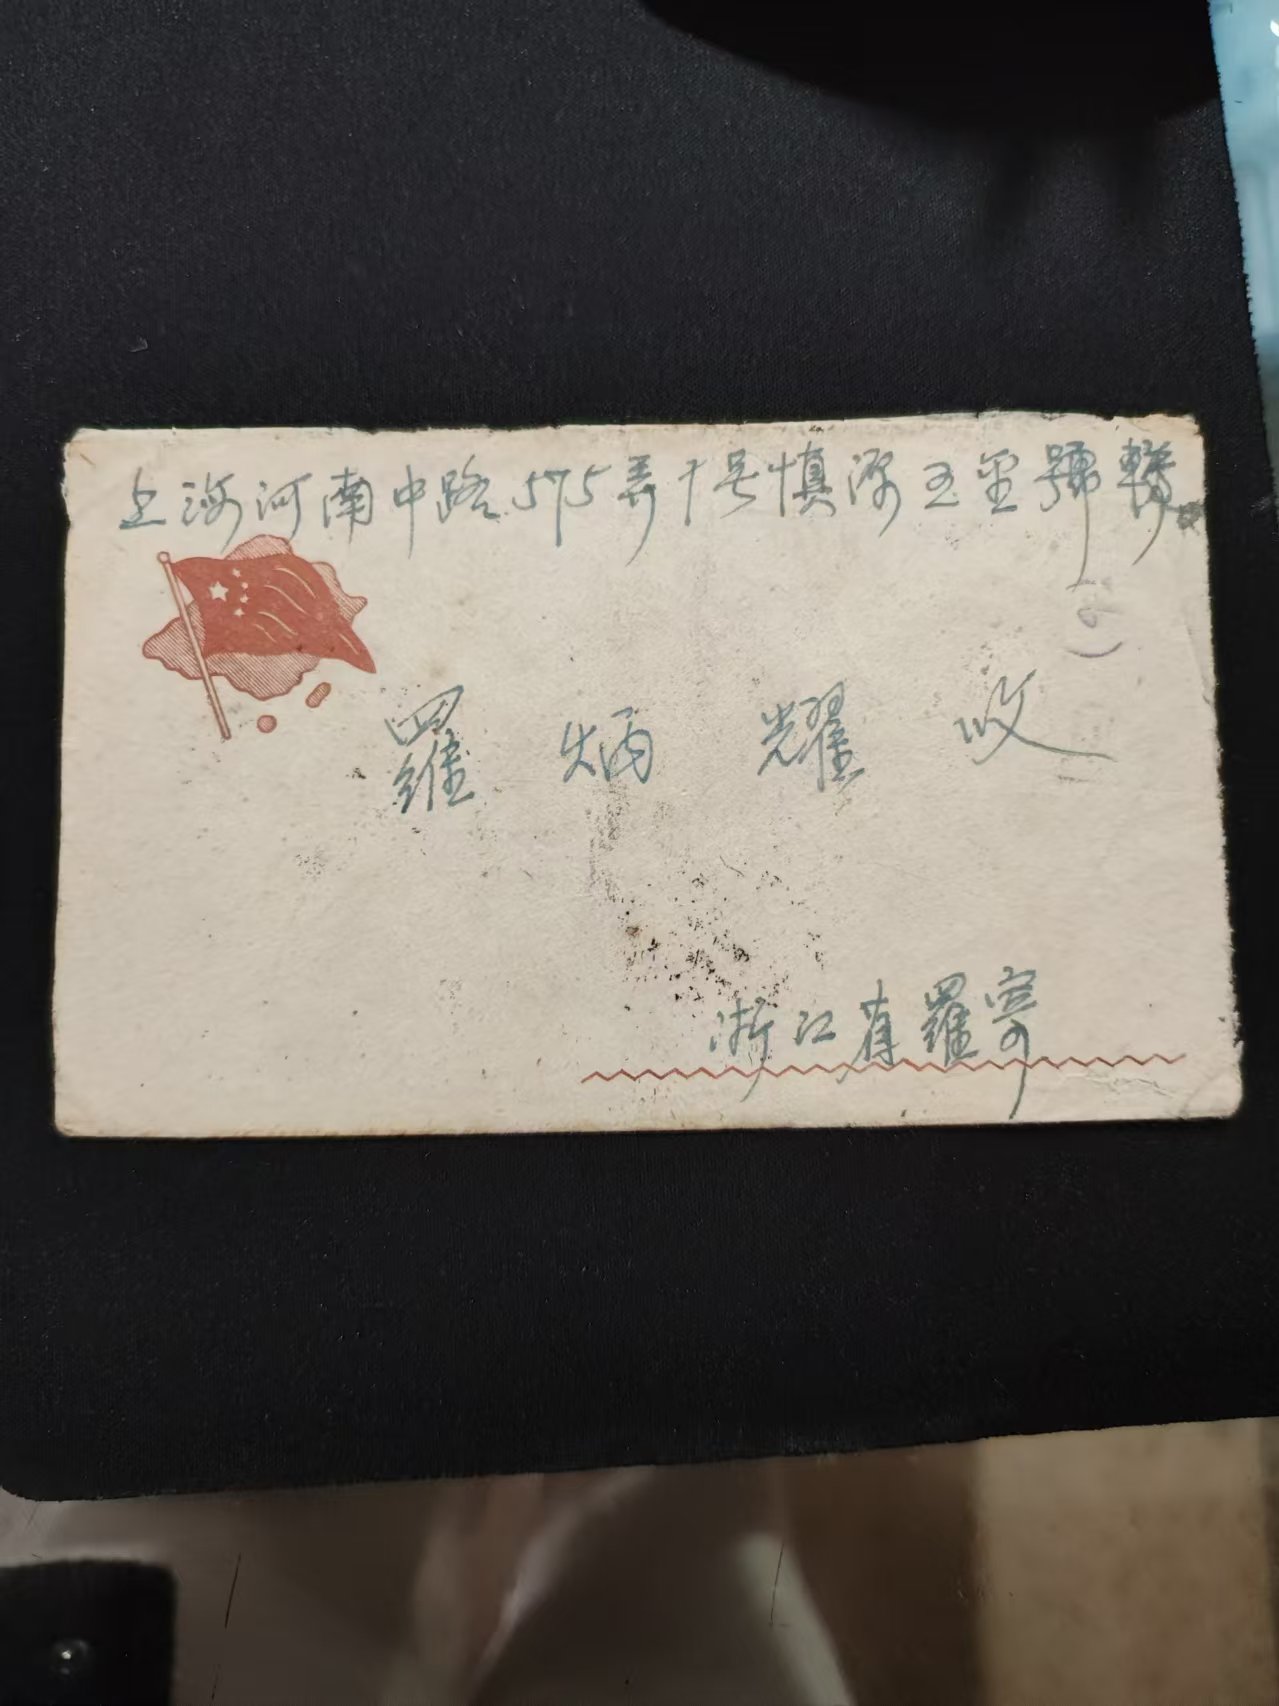 上海河南中路575弄十号慎源五金號轉
羅炳耀 收
浙江省羅寄